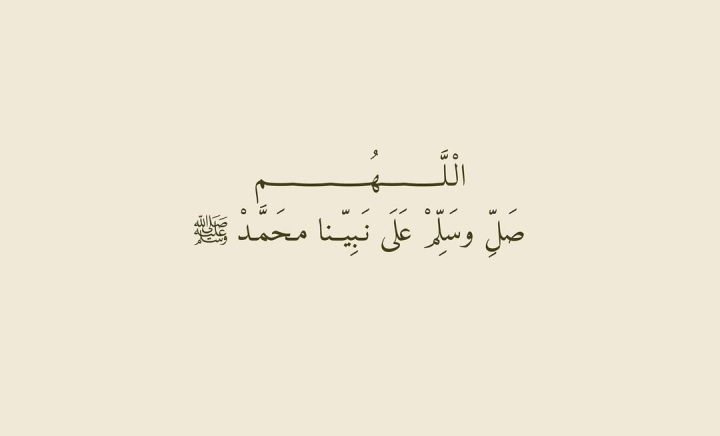 الْلَّـــــــهُـــــــــــم
صَلِّ وسَلِّمْ عَلَى نَـبِيّـنا مـحَمَّـدْ ﷺ